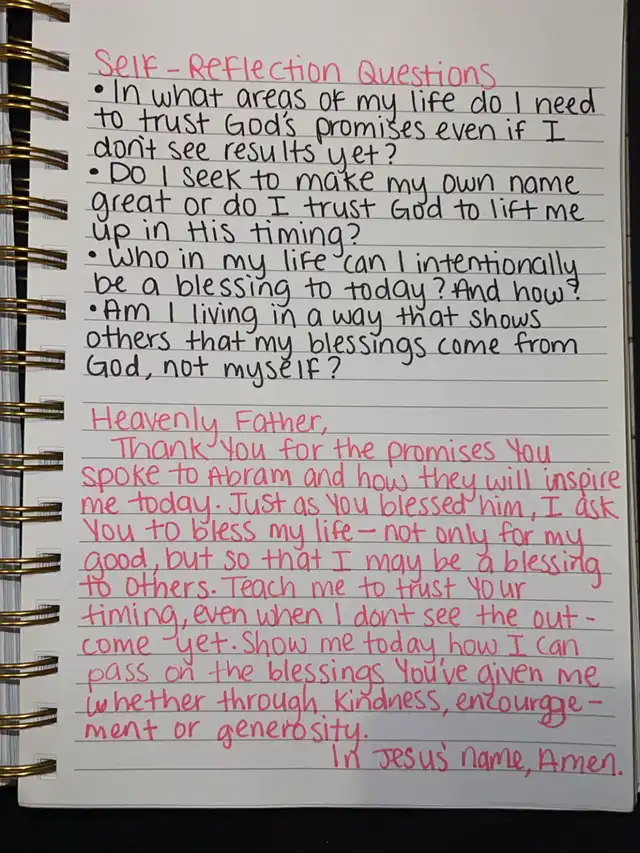 Self-Reflection Questions
• In what areas of my life do I need
to trust God's promises even if I
don't see results yet?
• Do I seek to make my own name
great or do I trust God to lift me
up in His timing?
• Who in my life can I intentionally
be a blessing to today? And how?
• Am I living in a way that shows
others that my blessings come from
God, not myself?
Heavenly Father,
Thank You for the promises You
spoke to Abram and how they will inspire
me today. Just as You blessed him, I ask
You to bless my life - not only for my
good, but so that I may be a blessing
to others. Teach me to trust Your
timing, even when I dont see the out-
come yet. Show me today how I can
pass on the blessings You've given me
whether through kindness, encourgge-
ment or generosity.
In Jesus' name, Amen.